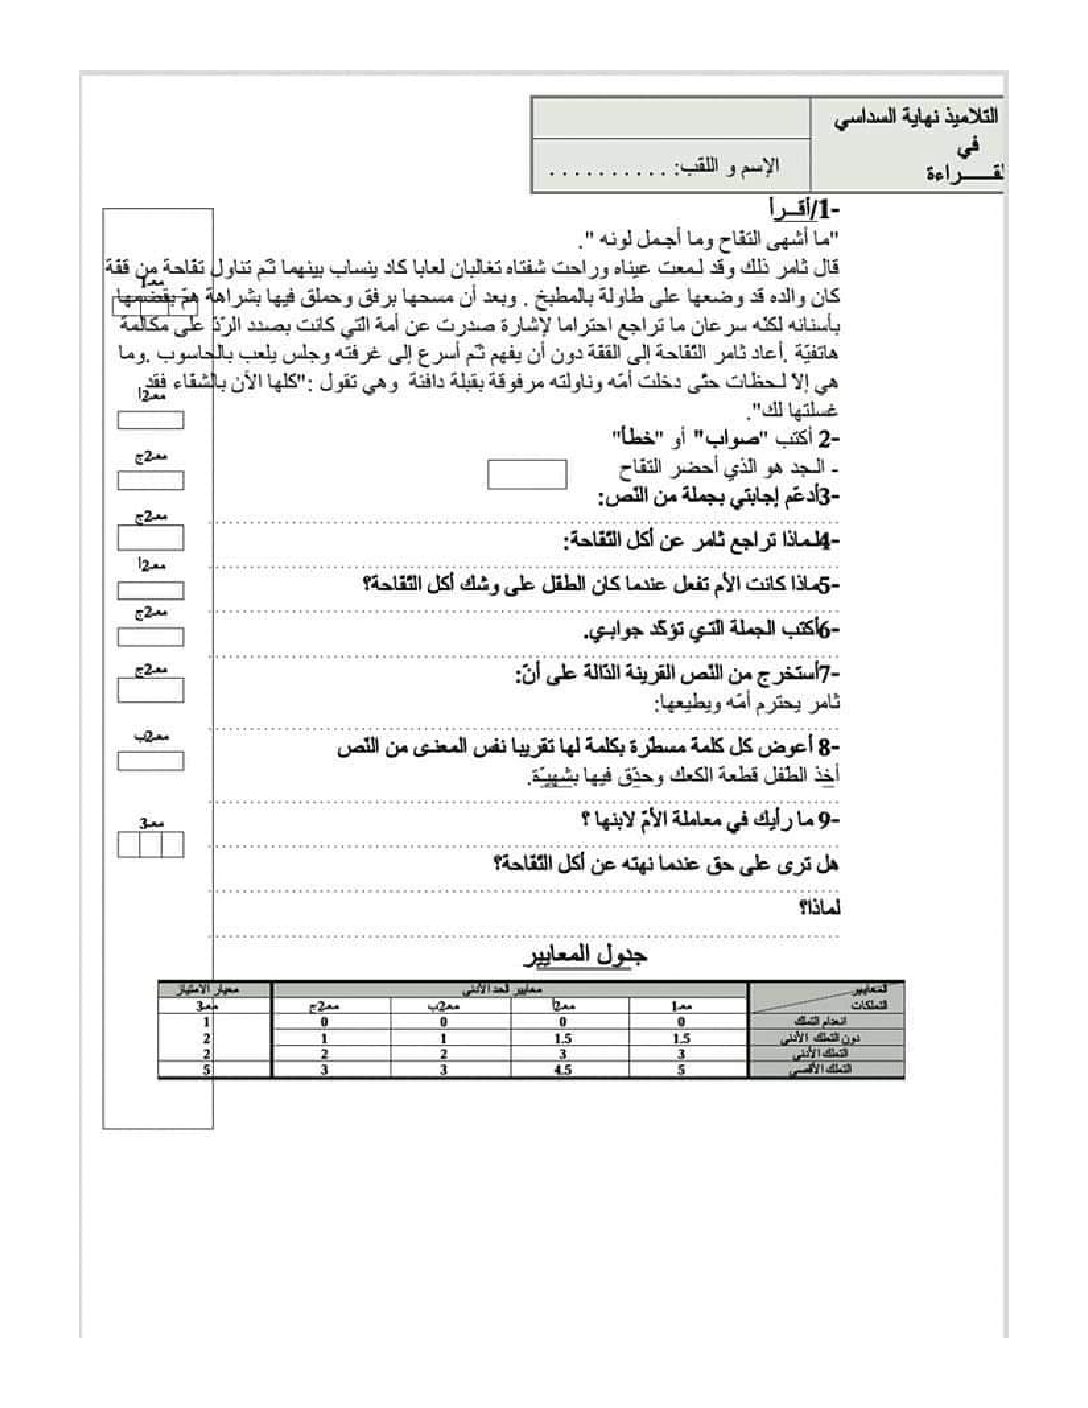 التلاميذ نهاية السداسي
في
لقـــراءة
الإسم و اللقب: . . . . . . . . . . .
-1/أقــرأ
"ما أشهى التفاح وما أجمل لونه ".
قال ثامر ذلك وقد لـمعت عيناه وراحت شفتاه تغالبان لعابا كاد ينساب بينهما ثـم تناول تفاحة من قفة
كان والده قد وضعها على طاولة بالمطبخ . وبعد أن مسحها برفق وحملق فيها بشراهة همّ بقضمها
بأسنانه لكنّه سرعان ما تراجع احتراما لإشارة صدرت عن أمة التي كانت بصدد الردّ على مكالمة
هاتفيّة .أعاد ثامر التّفاحة إلى القفة دون أن يفهم ثـم أسرع إلى غرفته وجلس يلعب بالحاسوب .وما
هي إلا لـحظات حتّى دخلت أمّه وناولته مرفوقة بقبلة دافئة وهي تقول :"كلها الآن بالشفاء فقد
غسلتها لك".
-2 أكتب "صواب" أو "خطأ"
- الـجد هو الذي أحضر التفاح
-3أدعّم إجابتي بجملة من النّص:
-4لـماذا تراجع ثامر عن أكل التّفاحة:
-5ماذا كانت الأم تفعل عندما كان الطفل على وشك أكل التّفاحة؟
-6أكتب الجملة التـي تؤكد جوابـي.
-7أستخرج من النّص القرينة الدّالة على أنّ:
ثامر يحترم أمّه ويطيعها:
-8 أعوض كل كلمة مسطّرة بكلمة لها تقريبا نفس المعنـى من النّص
أخذ الطّفل قطعة الكعك وحدّق فيها بشهيّة.
-9 ما رأيك في معاملة الأمّ لابنها ؟
هل ترى على حق عندما نهته عن أكل التّفاحة؟
لماذا؟
معـ1
معـ2ا
معـ2ج
معـ2ج
معـ2ا
معـ2ج
معـ2ج
معـ2ب
معـ3
جدول المعايير
المعايير معايير الحد الأدنى معيار الامتياز
التملكات معـ1 معـ2أ معـ2ب معـ2ج معـ3
انعدام التملك 0 0 0 0 1
دون التملك الأدنى 1.5 1.5 1 1 2
التملك الأدنى 3 3 2 2 2
التملك الأقصى 5 4.5 3 3 5